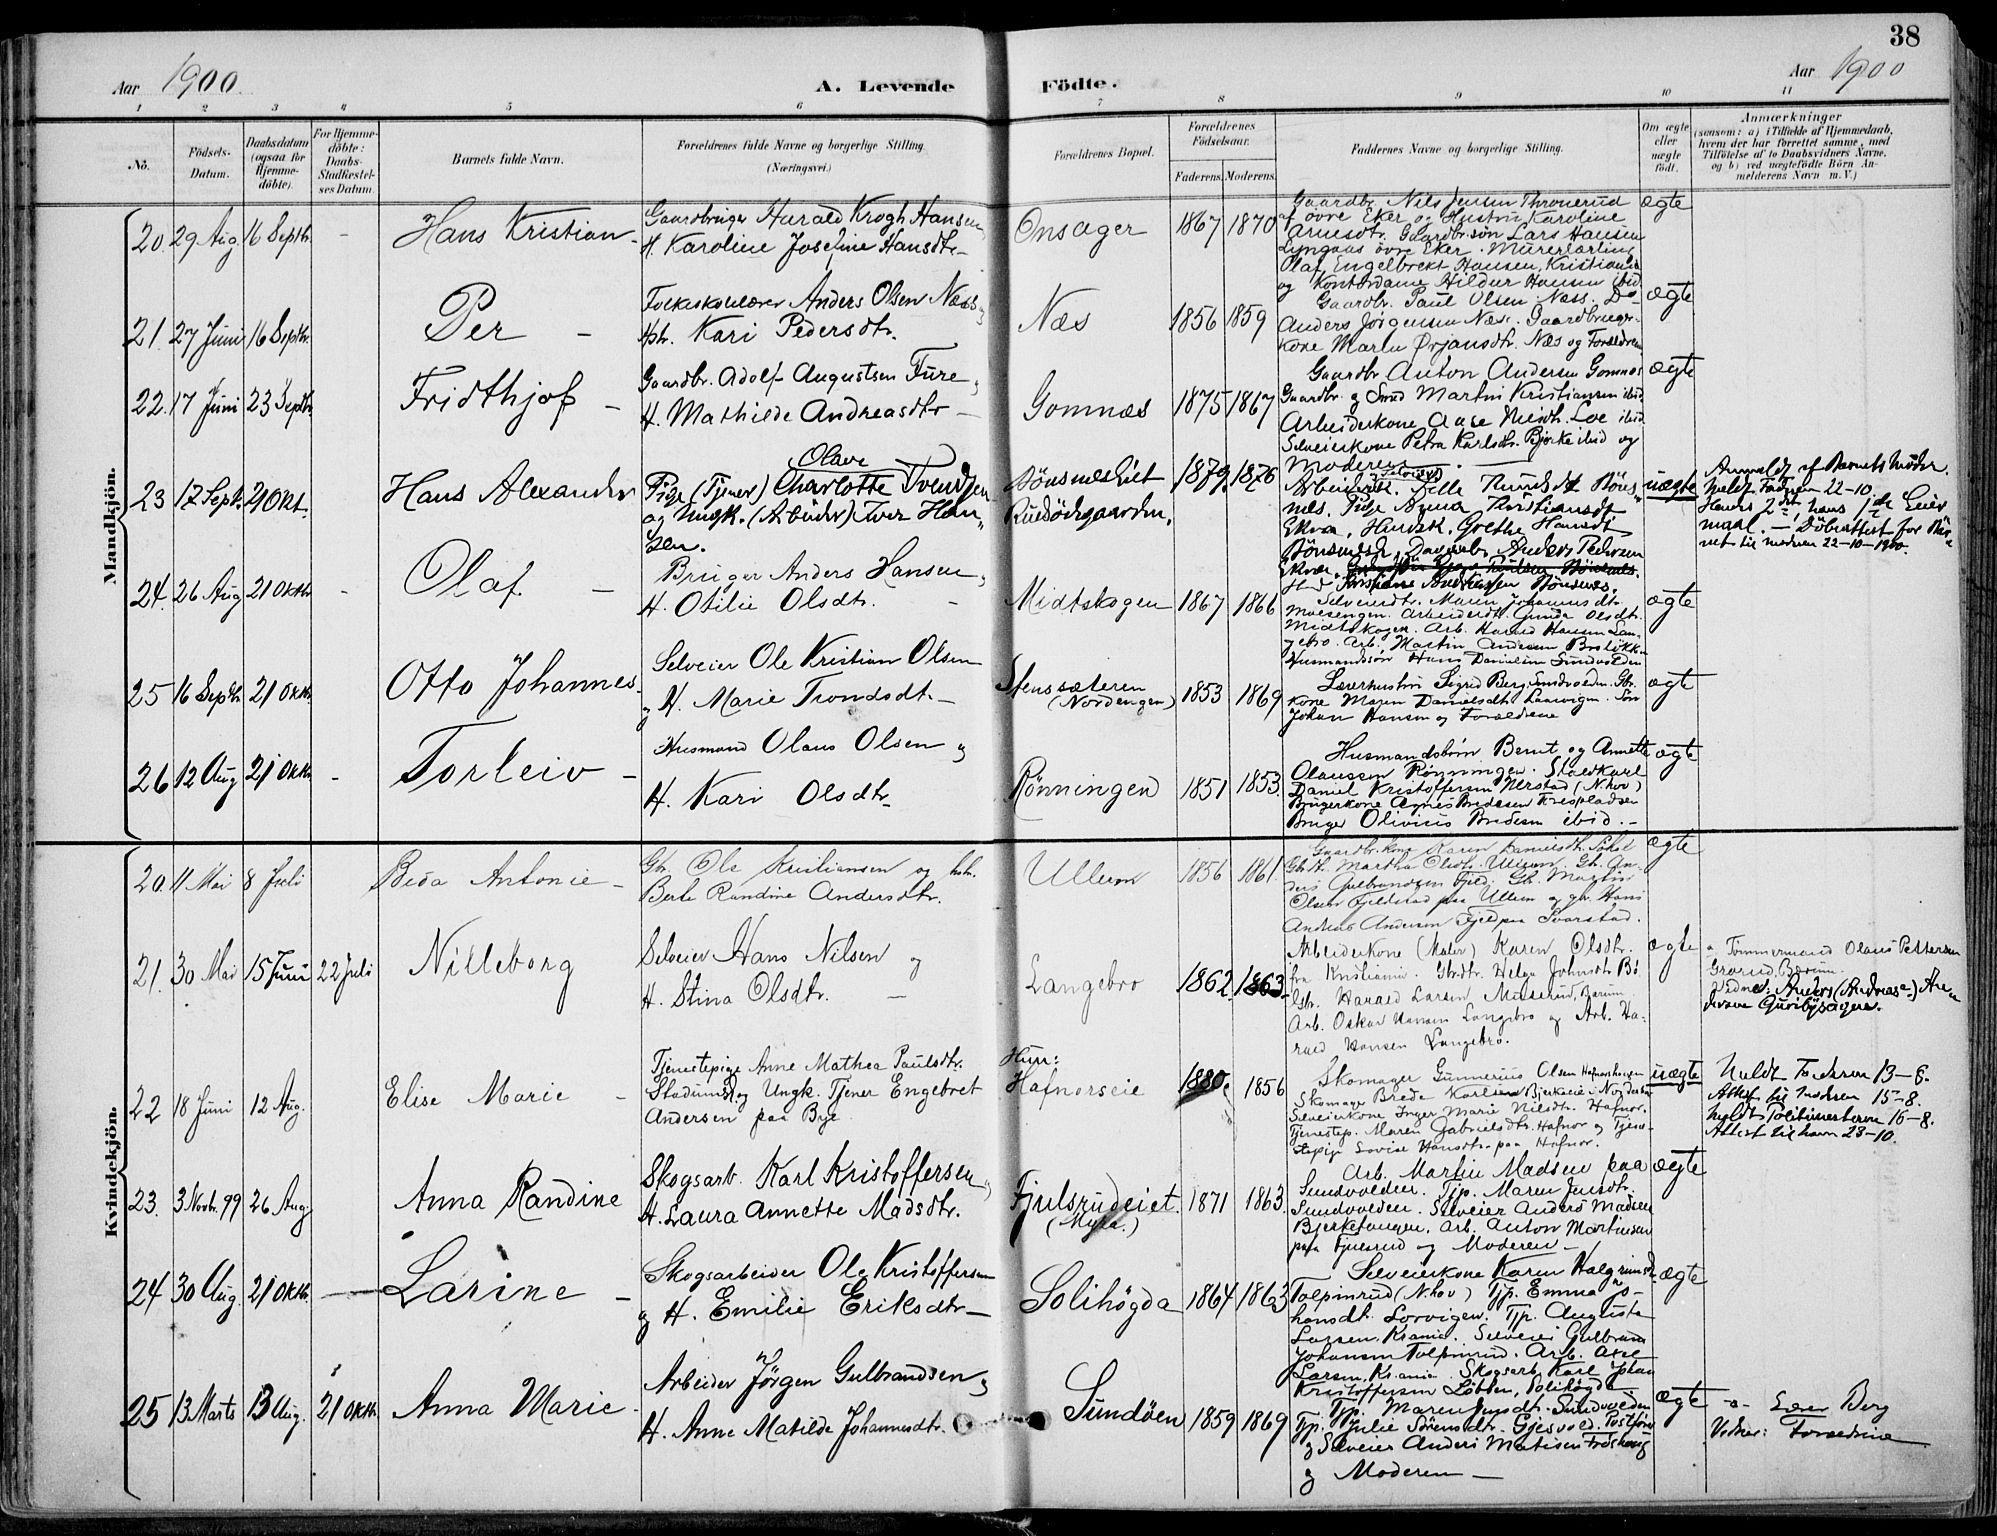 38
Aar 1900.
A. Levende Födte.
Aar 1900
1 2 3 4 5 6 7 8 9 10 11
No.
Födsels-Datum.
Daabsdatum (ogsaa for Hjemme-döbte).
For Hjemme-döbte: Daabs-Stadfæstel-ses Datum.
Barnets fulde Navn.
Forældrenes fulde Navne og borgerlige Stilling.
(Næringsvei.)
Forældrenes Bopæl.
Forældrenes Födselsaar.
Faderens. Moderens.
Faddernes Navne og borgerlige Stilling.
Om ægte eller uægte födt.
Anmærkninger
(saasom: a) i Tilfælde af Hjemmedaab,
hvem der har forrettet samme, med
Tilföielse af to Daabsvidners Navne,
og b) ved uægtefödte Börn An-
melderens Navn m. V.)
Mandkjön.
20. 29 Aug. 16 Septb. - Hans Kristian -
Gaardbruger Harald Krogh Hansen
H. Karoline Josefine Hansdtr -
Onsager 1867 1870
Gaardbr. Nils Jensen Thronerud
af övre Eker og Hustru Karoline
Arnesdtr. Gaardbr. sön Lars Hansen
Lyngaas övre Eker. Murerlærling
Olaf Engelbrekt Hansen, Kristiania
og Kontordame Hildur Hansen ibid.
ægte
21. 27 Juni 16 Septb. Per -
Folkeskolelærer Anders Olsen Næs og
Hst. Kari Pedersdtr.
Næs 1856 1859
Gaardbr. Paul Olsen Næss. Do
Anders Jørgensen Næs. Gaardbruger-
kone Marta Ørjansdtr. Næs og Forældrene
ægte
22. 17 Juni 23 Septb. Fridthjof -
Gaardbr. Adolf Augustsen Fure og
H. Mathilde Andreasdtr -
Gomnæs 1875 1867
Gaardbr Anton Andersen Gomnæs
Gaardbr. og Smed Martin Kristiansen ibid
Arbeiderkone Aase Nilsdtr. Loe ibid.
Selveierkone Petra Karlsdtr. Bjørke ibid og
Moderen
ægte
23 17 Sept. 21 Okt. Hans Alexander
Olave
Pige (Tjener) Charlotte Svendsen
og Ungk. (Arbeider) Iver Han-
sen.
Bönsnes Eiet
1879. 1876
uægte
Anmeldt af Barnets Moder
Meldt Fadren 22-10.
Hendes 2det, hans 1ste Leier
maal. - Döbsattest for Bar-
net til moderen 22-10-1900.
24. 26 Aug 21 Oktb. - Olaf. -
Bruger Anders Hansen og
H. Otilie Olsdtr. -
Midtskogen 1867 1866
Midtskogen. Arb. Harald Hansen Lan-
gebro. Arb. Martin Andersen Braløkken
Husmandsön Hans Danielsen Sundvolden
ægte
25 16 Septb. 21 Oktb. Otto Johannes -
Selveier Ole Kristian Olsen
og H. Marie Trondsdtr. -
Stenssæteren
(Nordengen) 1853 1869
Lærerhustru Sigrid Berg, Sundvolden. Gbr.
kone Maren Danielsdtr. Sön
Johan Hansen og Forældrene
ægte
26 12 Aug 21 Oktb. - Torleiv -
Husmand Olaus Olsen og
H. Kari Olsdtr.
Rönningen 1851 1853.
Husmandsbørn Bernt og Annette
Olaussen Rønningen. Staldkarl
Daniel Kristoffersen Nerstad (N.hov)
Brugerkone Agnes Bredesen Trespladsen
Bruger Olivius Bredesen ibid. -
ægte
Kvindekjön.
20. 11 Mai 8 Juli Beda Antonie -
Gbr. Ole Kristiansen og hst.
Berte Randine Andersdtr.
Ullern 1856 1861.
Gaardbr.kone Karen Danielsdtr.
Gbr. k. Martha Olsdtr. Ullern. Gbr. An-
ders Gulbrandsen Fjeld. Gbr. Martin
Olsen Fjeldstad paa Ullern og gbr. Hans
Andreas Andersen Fjeld paa Svarstad.
ægte
21. 30 Mai 15 Juni 22 Juli Nilleborg
Selveier Hans Nilsen og
H. Stina Olsdtr. -
Langebro 1862. 1863.
Arbeiderkone (Maler) Karen Olsdtr.
fra Kristiania. Gbrdtr. Helga Johnsdtr. Bö
Gbr. Harald Larsen Bærum
Arb. Oskar Hansen Langebro og Arb. Ha-
rald Hansen Langebro.
ægte
a Tømmermand Olaus Pettersen
Grorud, Bærum.
Vidner: Anders (Andreas)
22 18 Juni 12 Aug. Elise Marie -
Tjenestepige Anne Mathea Paulsdtr.
og Ungk. Tjener Engebret
Andersen paa Bye
Hun:
Hafnorseie 1880. 1856
Skomager Gunnerius Olsen
Skomager Brede Karlsen Bjerkeeie i Norderhov
Selveierkone Inger Marie Nilsdtr. Hafnor.
Tjenestep. Maren Gabrielsdtr. Hafnor og Tjene-
stepige Lovise Hansdtr. paa Hafnor.
uægte
Meldt Fadren 13-8.
Attest til Moderen 15-8.
Meldt Politimesteren 16-8.
Attest til ham 23-10.
23. 3 Novb. 99 26 Aug. Anna Randine
Skogsarb. Karl Kristoffersen og
H. Laura Annette Madsdtr.
Fjulsrudeiet.
(Myra.) 1871 1863.
Arb. Martin Madsen paa
Sundvolden. Tjp. Maren Jensdtr.
Sundvolden. Selveier Anders Madsen
Bjerketangen. Arb. Anton Martinsen
paa Fjulsrud og Moderen -
ægte
24 30 Aug. 21 Oktb. - Larine -
Skogsarbeider Ole Kristoffersen
og H. Emilie Eriksdtr -
Solihögda 1864 1863
Selveierkone Karen Halgrimsdtr.
Tolpinrud (N.hov) Tjp. Emma Jo-
hansdtr. Sorvigen. Tjp. Augusta
Larsen, Krania. Selveier Gulbrand
Johansen Tolpinrud. Arb. Axel
Larsen, Krania. Skogsarb. Karl Johan
Kristoffersen Løbben, Solihögda
ægte
25 13 Marts 13 Aug. 21 Oktb. Anna Marie -
Arbeider Jörgen Gulbrandsen og
H. Anne Matilde Johannesdtr.
Sundöen 1859 1869
Tjp. Maren Jensdtr. Sundvolden
Tjp. Julie Sörensdtr. Gjesvold.
og Selveier Anders Matisen
og Moderen -
ægte
-a- Lærer Berg
Vidner: Forældrene